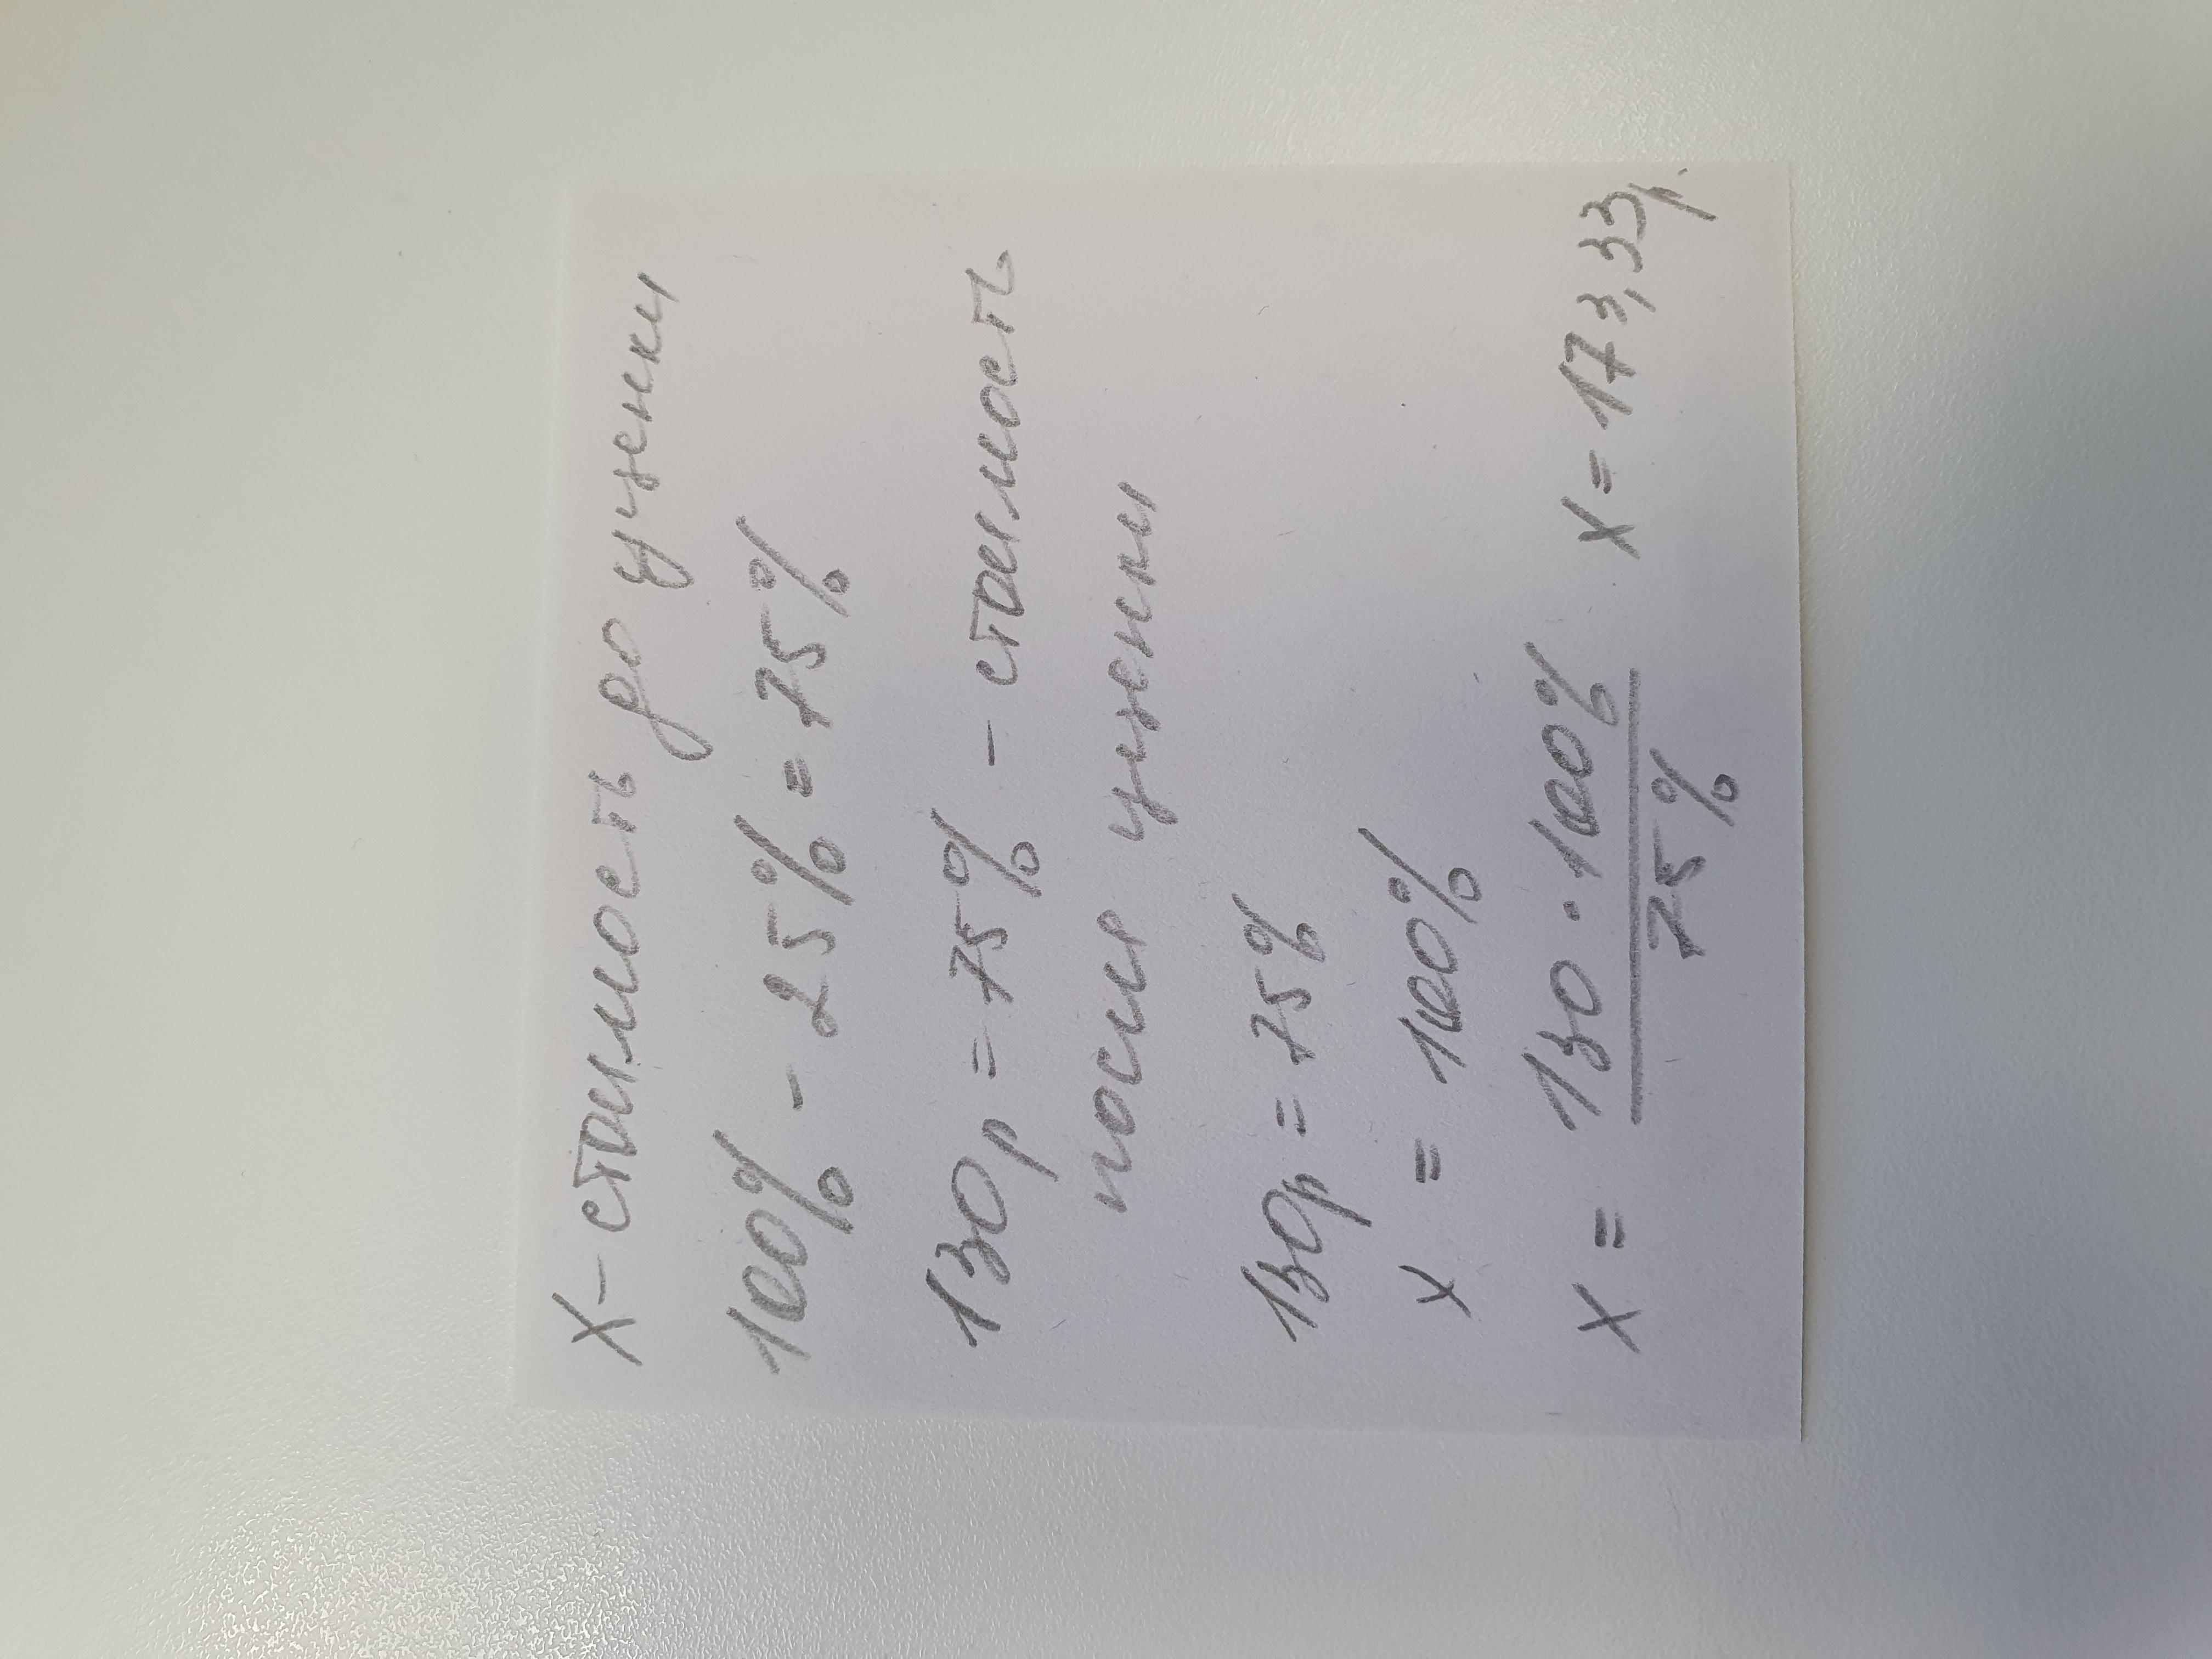 х - стоимость до уценки
100% - 25% = 75%
130р = 75% - стоимость
после уценки
130р = 75%
х = 100%
х = 130 · 100% / 75% х = 173,33р.